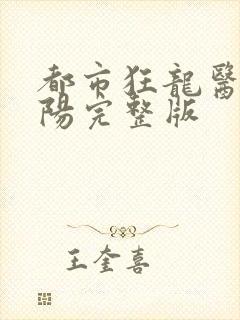 都市狂龍醫
陽完整版
王奎喜